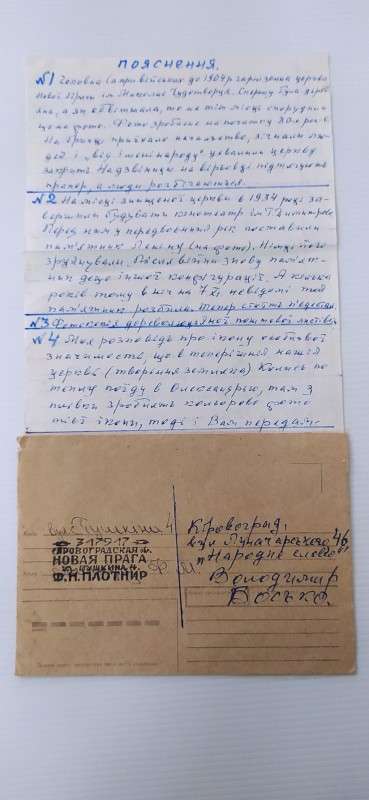 ПОЯСНЕННЯ.
№1 Головна (а при військах до 1904 р гарнізонна церква
Нової Праги ім. Миколая Чудотворця. Спершу була дерев'
яна, а як обвітшала, то на тім місці спорудили
що на фото. Фото зроблено на початку 30х років.
На бричці приїхало начальство, зігнали лю-
дей і „від імені народу" ухвалили церкву
закрить. На дзвіниці на вірьовці підтягують
прапор, а люди розбігаються.
№2 На місці знищеної церкви в 1934 році за-
вершили будувати кінотеатр ім. Г. Димитрова
Перед ним у передвоєнний рік поставили
пам'ятник Леніну (на фото). Німці його
зруйнували. Після війни знову пам'ят-
ник дещо іншої конфігурації. А кілька
років тому в ніч на 7 XI невідомі той
пам'ятник розбили. Тепер стоїть п'єдестал
№3 Фотокопія дореволюційної поштової листівки
№4 Моя розповідь про ікону особливої
значимості, що в теперішній нашій
церкві (творіння земляка) Колись по
теплу поїду в Олександрію, там з
плівки зроблять кольорове фото
тієї ікони, тоді і Вам передам.
вул. Пушкіна 4
317917
КІРОВОГРАДСКАЯ обл.
НОВАЯ ПРАГА
ул. ПУШКИНА, 4
Ф.Н.ПЛОТНИР
Ф. М.
Кіровоград,
вул Луначарського 46
„Народне слово"
Володимир
Босько.